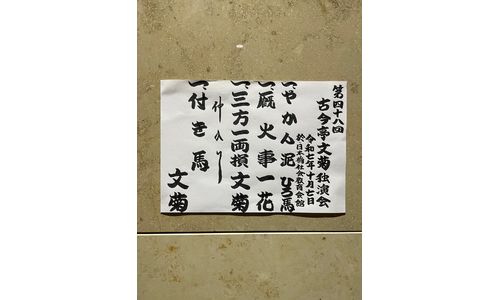 第四十八回
古今亭文菊独演会
令和七年十月七日
於日本橋社会教育会館
一、やかん泥 ひろ馬
一、厩火事 一花
一、三方一両損 文菊
仲入り
一、付き馬 文菊